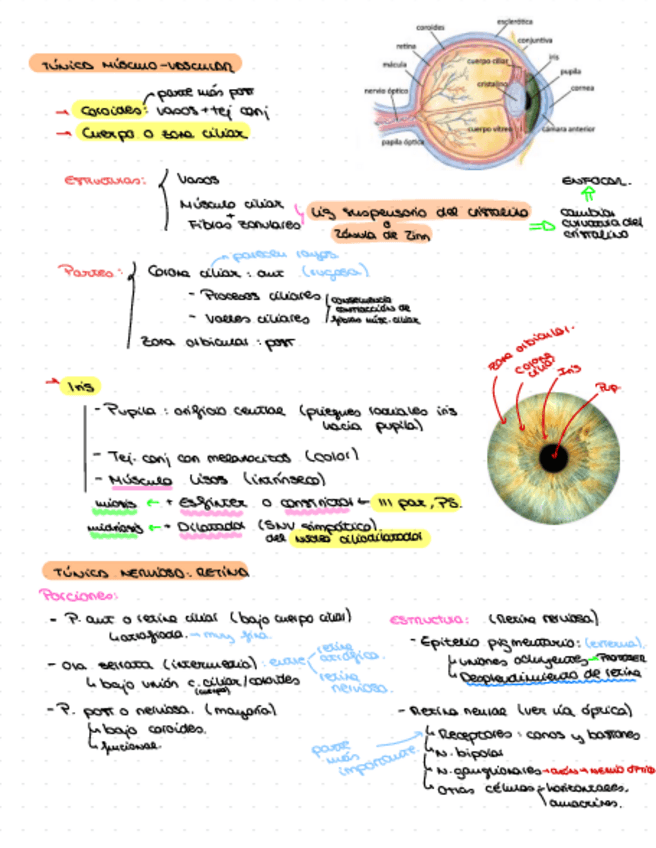 TÚNICA MÚSCULO-VASCULAR
parte más post
→ Coroides: vasos + tej conj
→ Cuerpo o zona ciliar
esclerótica
coroides
conjuntiva
retina
iris
mácula
cuerpo ciliar
pupila
cristalino
nervio óptico
cornea
cuerpo vítreo
cámara anterior
papila óptica
Estructuras:
Vasos
Músculo ciliar
+
Fibras zonulares
Lig suspensorio del cristalino
o
Zónula de Zinn
⇒ cambiar curvatura del cristalino
ENFOCAR.
parecen rayos
Partes: Corona ciliar: ant (rugosa)
- Procesos ciliares
- Valles ciliares
consecuencia
contracción de
fibras músc. ciliar
Zona orbicular: post
→ Iris
- Pupila: orificio central (pliegues radiales iris
hacia pupila)
- Tej. conj con melanocitos (color)
- Músculo lisos (intrínseco)
miosis ← + Esfínter o constrictor ← III par, PS.
midriasis ← + Dilatador (SNV simpático).
del núcleo ciliodilatador
Zona orbicular.
Corona ciliar
Iris
Pup.
TÚNICA NERVIOSO: RETINA
Porciones:
- P. ant o retina ciliar (bajo cuerpo ciliar)
↳ atrofiada. → muy fina.
- Ora serrata (intermedia): entre
retina atrófica.
retina nerviosa.
↳ bajo unión c. ciliar/coroides
(cuerpo)
- P. post o nerviosa. (mayoría)
↳ bajo coroides.
↳ funcional.
ESTRUCTURA: (Retina nerviosa)
- Epitelio pigmentario: (externa).
↳ uniones ocluyentes → PROTEGER
↳ Desprendimiento de retina
- Retina neural (ver vía óptica)
parte más importante.
↳ Receptores: conos y bastones
↳ N. bipolar
↳ N. ganglionares → axón → nervio óptico
↳ Otras células: horizontales,
amacrinas.